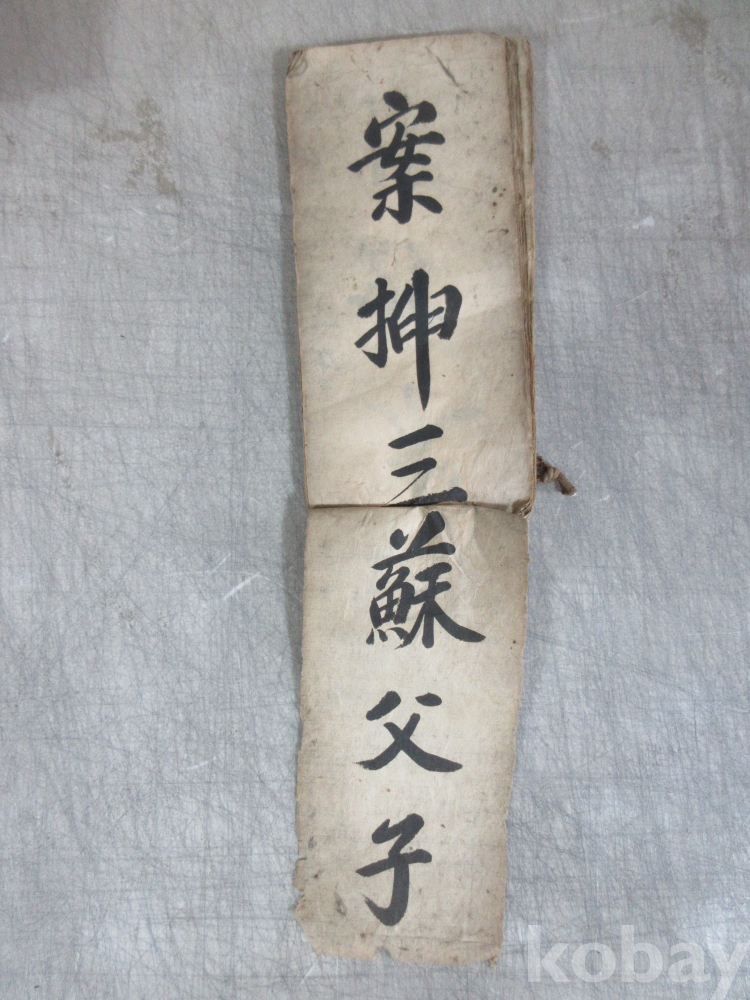 案押三蘇父子
kobay